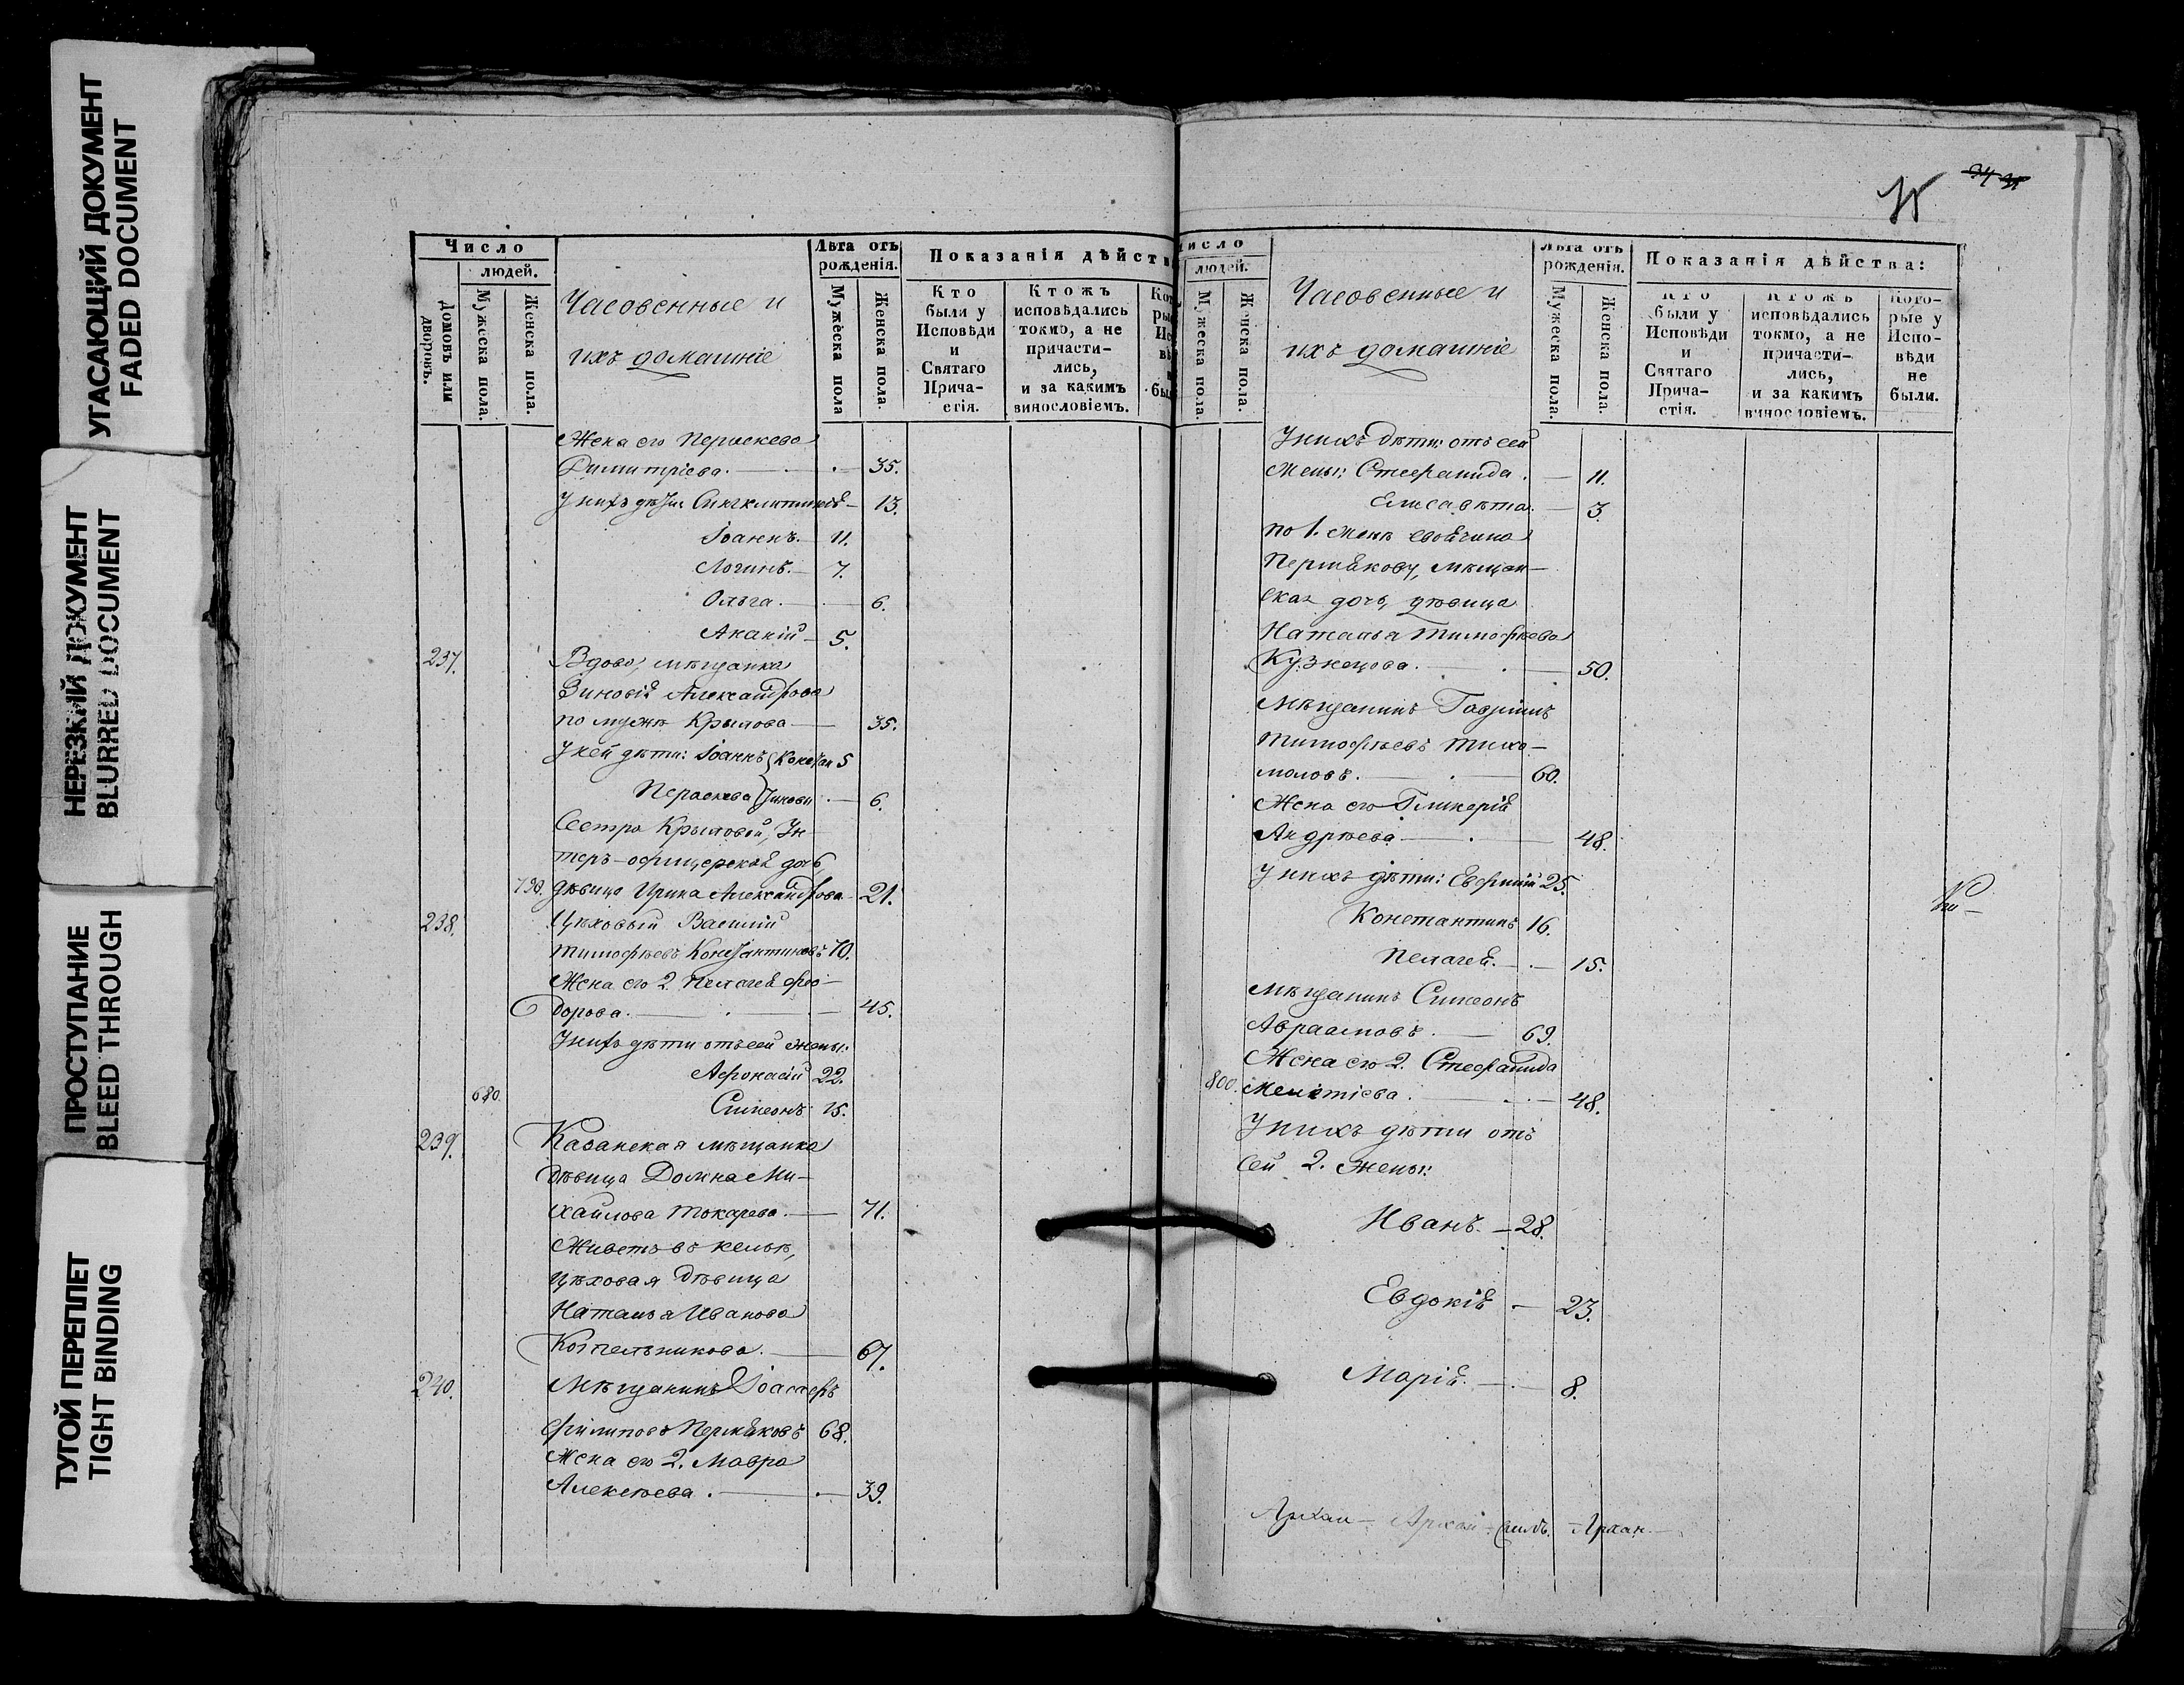 УГАСАЮЩИЙ ДОКУМЕНТ
FADED DOCUMENT
НЕРЕЗКИЙ ДОКУМЕНТ
BLURRED DOCUMENT
ПРОСТУПАНИЕ
BLEED THROUGH
ТУГОЙ ПЕРЕПЛЕТ
TIGHT BINDING
Число
людей.
Домовъ или дворовъ.
Мужеска пола.
Женска пола.
Часовенные и
ихъ домашніе
Лѣта отъ
рожденія.
Мужеска пола
Женска пола.
Показанія дѣйств
Кто
были у
Исповѣди
и
Святаго
Прича-
стія.
Ктожъ
исповѣдались
токмо, а не
причасти-
лись,
и за какимъ
винословіемъ.
Жена его Параскева
Димитріева. 35.
У нихъ дѣти: Синклитикія 13.
Іоаннъ. 11.
Логинъ. 7.
Ольга. 6.
Ананій 5.
237. Вдова, мѣщанка
Зиновія Александрова
по мужѣ Крылова 35.
У ней дѣти: Іоаннъ 5
Параскева 6.
Сестра Крыловой, Ун-
теръ-офицерская дочь,
790. дѣвица Ирина Александрова 21.
238. Цѣховый Василій
Тимофѣевъ Константиновъ 70.
Жена его 2. Пелагея Фео-
дорова. 45.
У нихъ дѣти отъ сей жены:
Афонасій 22.
680. Симеонъ 15.
239. Казанская мѣщанка
дѣвица Домна Ми-
хайлова Токарева. 71.
Живетъ въ кельѣ,
цѣховая дѣвица
Наталья Иванова
Котельникова. 67.
240. Мѣщанинъ Іоасафъ
Филиповъ Пермяковъ 68.
Жена его 2. Мавра
Алексѣева. 39.
34
число
людей.
Мужеска пола.
Женска пола.
Часовенные и
ихъ домашніе
Лѣта отъ
рожденія.
Мужеска пола.
Женска пола.
Показанія дѣйства:
Кто
были у
Исповѣди
и
Святаго
Прича-
стія.
Ктожъ
исповѣдались
токмо, а не
причасти-
лись,
и за какимъ
винословіемъ.
Кото-
рые у
Испо-
вѣди
не
были.
У нихъ дѣти: отъ сей
жены: Стефанида. 11.
Елисавета. 3.
по 1. женѣ
Пермякову, мѣщан-
ская дочь, дѣвица
Наталья Тимофѣева
Кузнецова. 50.
Мѣщанинъ Гавріилъ
Тимофѣевъ Тихо-
моловъ. 60.
Жена его Гликерія
Андрѣева 48.
У нихъ дѣти: Евфимій 25.
Константинъ 16.
Пелагея. 15.
Мѣщанинъ Симеонъ
Авраамовъ. 69.
Жена его 2. Стефанида
800. Мелетіева. 48.
У нихъ дѣти отъ
сей 2. жены:
Иванъ. 28.
Евдокія 23.
Марія. 8.